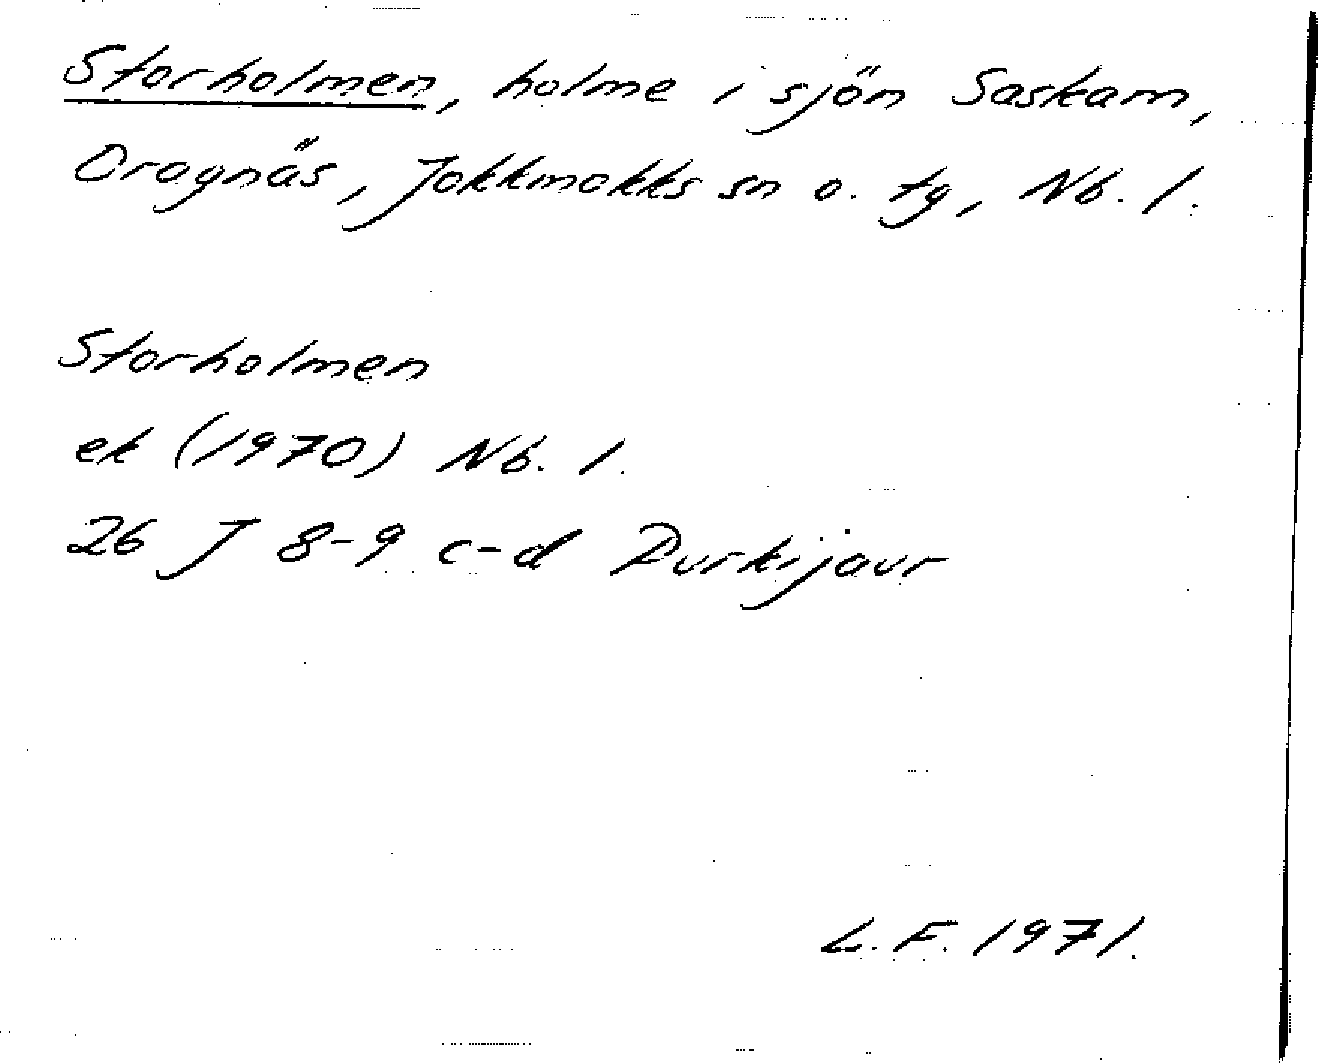 Storholmen, holme i sjön Saskam,
Oragnäs, Jokkmokks sn o. tg, Nb. l.
Storholmen
ek (1970) Nb. l.
26 J 8-9 c-d Purkijaur
L. F. 1971.